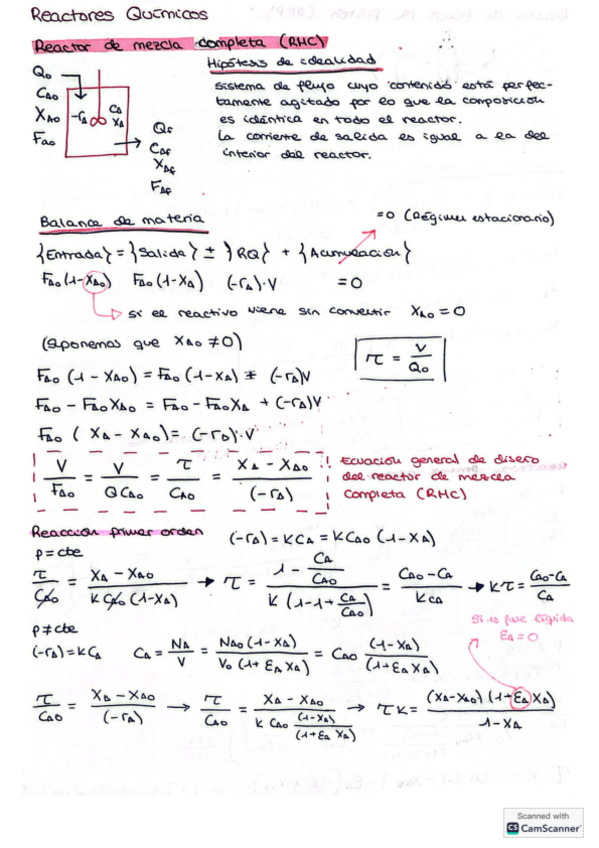 Reactores Químicos
Reactor de mezcla completa (RMC)
Hipótesis de idealidad
Qo
CAO
XAO
FAO
-rA
CA
XA
Qf
CAf
XAf
FAf
Sistema de flujo cuyo contenido está perfec-
tamente agitado por lo que la composición
es idéntica en todo el reactor.
La corriente de salida es igual a la del
interior del reactor.
Balance de materia
=0 (Régimen estacionario)
{Entrada} = {Salida} ± {RQ} + {Acumulación}
FAO(1-XAO) FAO(1-XA) (-rA)·V =0
si el reactivo viene sin convertir XAO = 0
(Suponemos que XAO ≠ 0)
τ = V/Qo
FAO (1 - XAO) = FAO (1-XA) + (-rA)V
FAO - FAO XAO = FAO - FAO XA + (-rA)V
FAO (XA - XAO) = (-rA)·V
V/FAO = V/(Q CAO) = τ/CAO = (XA - XAO)/(-rA)
Ecuación general de diseño
del reactor de mezcla
completa (RMC)
Reacción primer orden (-rA) = KCA = KCAO (1-XA)
ρ = cte
τ/CAO = (XA - XAO)/(K CAO (1-XA)) → τ = (1 - CA/CAO)/(K (1-1+CA/CAO)) = (CAO - CA)/(K CA) → Kτ = (CAO-CA)/CA
Si es fase líquida
εA = 0
ρ ≠ cte
(-rA) = KCA CA = NA/V = NAO (1-XA)/(Vo (1+ εA XA)) = CAO (1-XA)/(1+εA XA)
τ/CAO = (XA - XAO)/(-rA) → τ/CAO = (XA - XAO)/(K CAO (1-XA)/(1+εA XA)) → τK = (XA-XAO)(1+εA XA)/(1-XA)
Scanned with
CS CamScanner